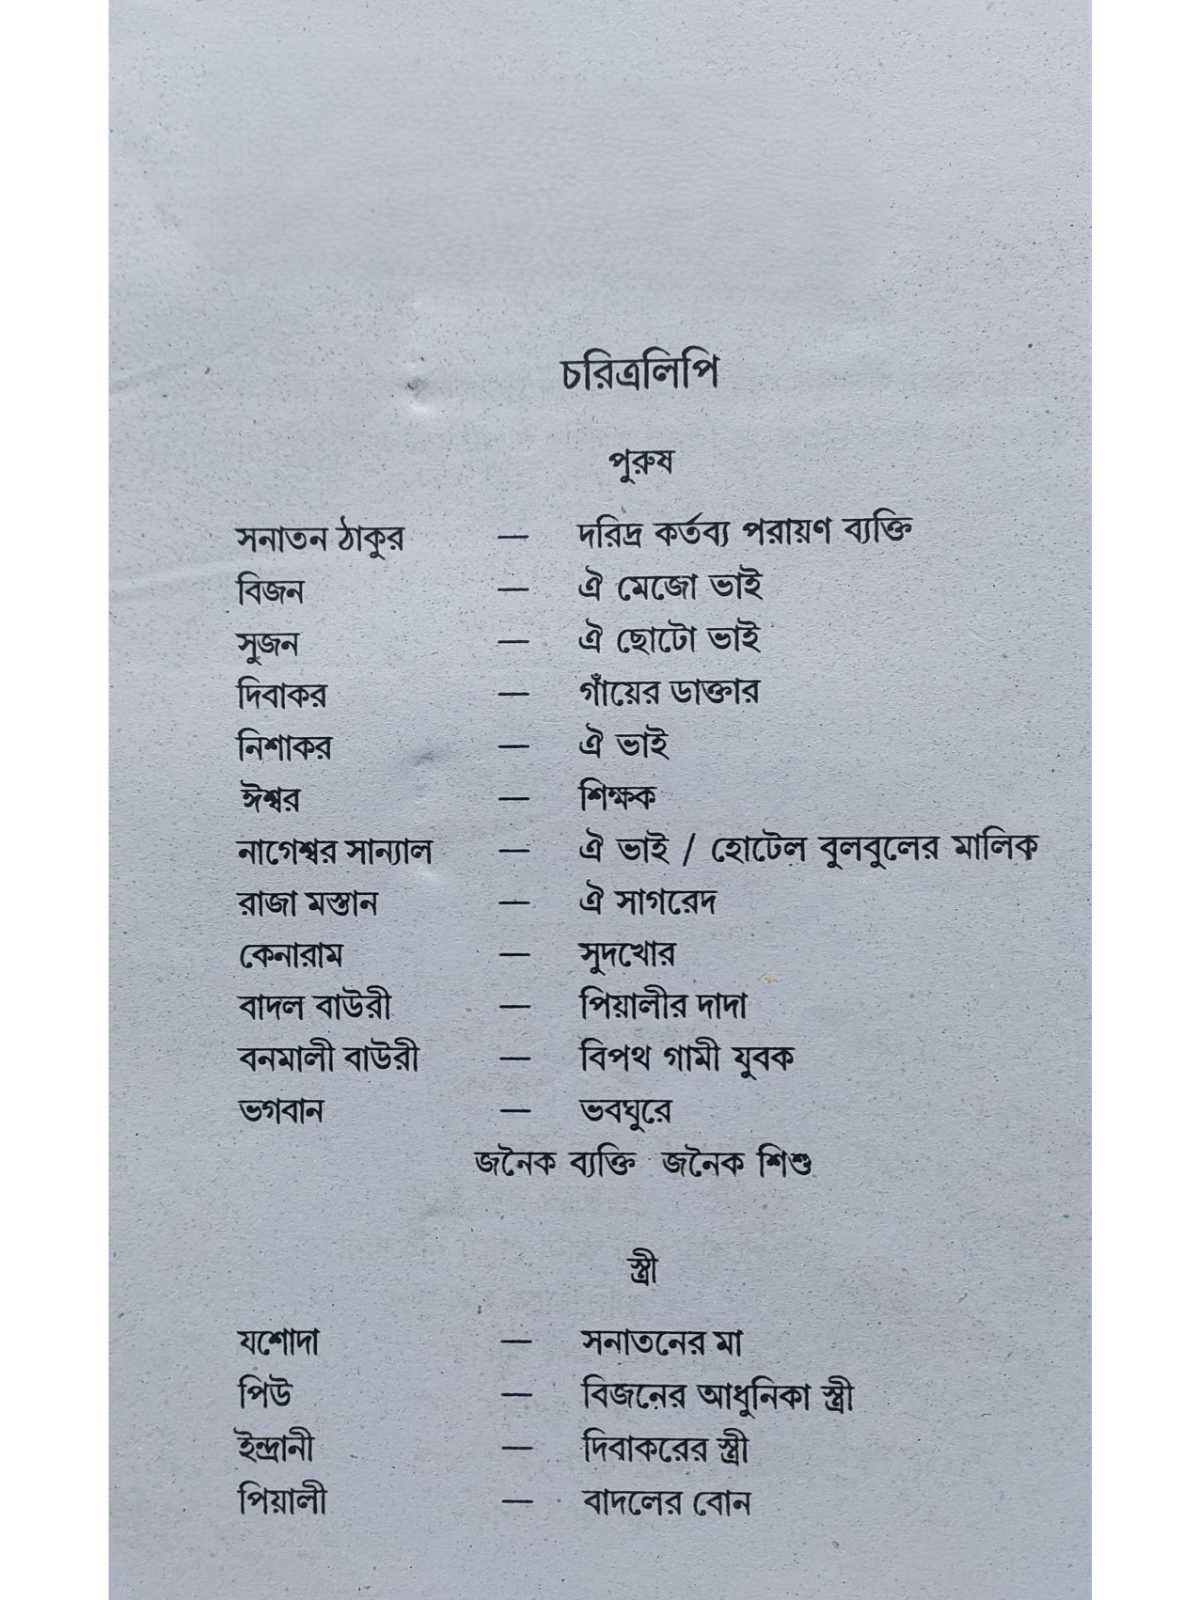 চরিত্রলিপি
পুরুষ
সনাতন ঠাকুর — দরিদ্র কর্তব্য পরায়ণ ব্যক্তি
বিজন — ঐ মেজো ভাই
সুজন — ঐ ছোটো ভাই
দিবাকর — গাঁয়ের ডাক্তার
নিশাকর — ঐ ভাই
ঈশ্বর — শিক্ষক
নাগেশ্বর সান্যাল — ঐ ভাই / হোটেল বুলবুলের মালিক
রাজা মস্তান — ঐ সাগরেদ
কেনারাম — সুদখোর
বাদল বাউরী — পিয়ালীর দাদা
বনমালী বাউরী — বিপথ গামী যুবক
ভগবান — ভবঘুরে
জনৈক ব্যক্তি জনৈক শিশু
স্ত্রী
যশোদা — সনাতনের মা
পিউ — বিজনের আধুনিকা স্ত্রী
ইন্দ্রানী — দিবাকরের স্ত্রী
পিয়ালী — বাদলের বোন